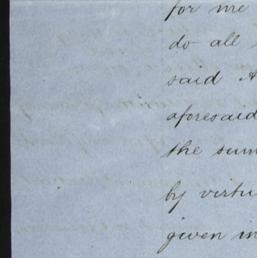 for me
do all
said A
aforesaid
the sum
by virtu
given in